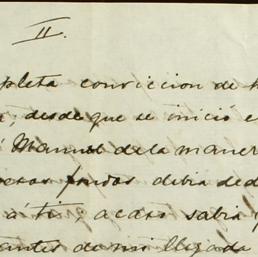 II.
pleta conviccion de
, desde que se inició e
Manuel de la maner
fondos debia ded
á ti; acaso sabia
antes de mi llegada